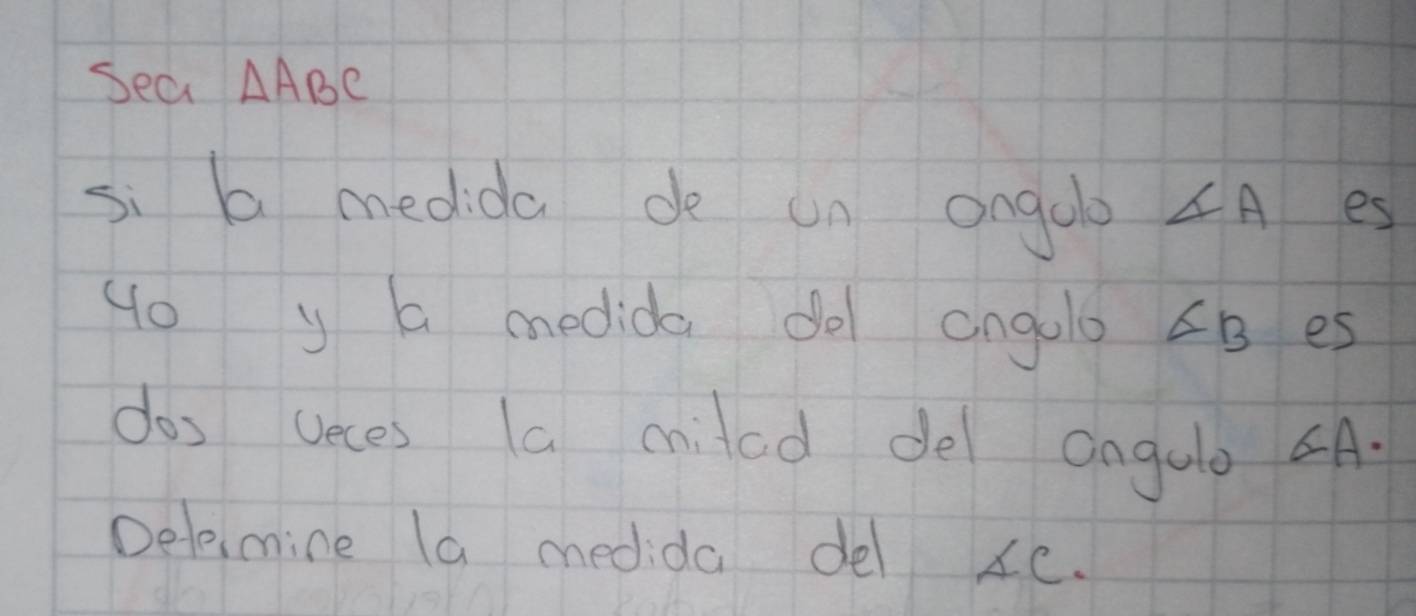 Sea ΔABC
Si la medida de un angulo ∡A es
40 y la medida del angulo ∡B es
dos veces la mitad del angulo ∡A.
Determine la medida del ∡C.